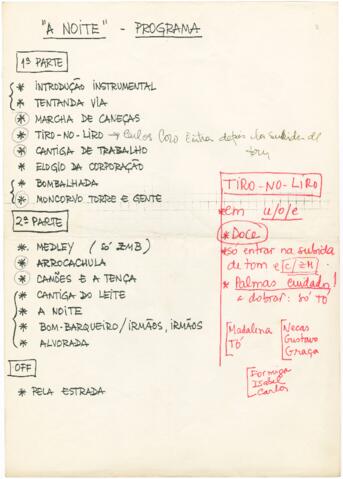 "A NOITE" - PROGRAMA
1ª PARTE
* INTRODUÇÃO INSTRUMENTAL
* TENTANDA VIA
* MARCHA DE CANEÇAS
* TIRO-NO-LIRO → Carlos Coro entra depois da subida de
tom
* CANTIGA DE TRABALHO
* ELOGIO DA CORPORAÇÃO
* BOMBALHADA
* MONCORVO TORRE E GENTE
2ª PARTE
* MEDLEY (SÓ ZMB)
* ARROCACHULA
* CAMÕES E A TENÇA
* CANTIGA DO LEITE
* A NOITE
* BOM-BARQUEIRO/IRMÃOS, IRMÃOS
* ALVORADA
OFF
* PELA ESTRADA
TIRO-NO-LIRO
* em u/o/e
* DOCE
* só entrar na subida
de tom e C/ZM
* Palmas cuidado!
a dobrar: só TÓ
Madalena
TÓ
Necas
Gustavo
Graça
Formiga
Isabel
Carlos